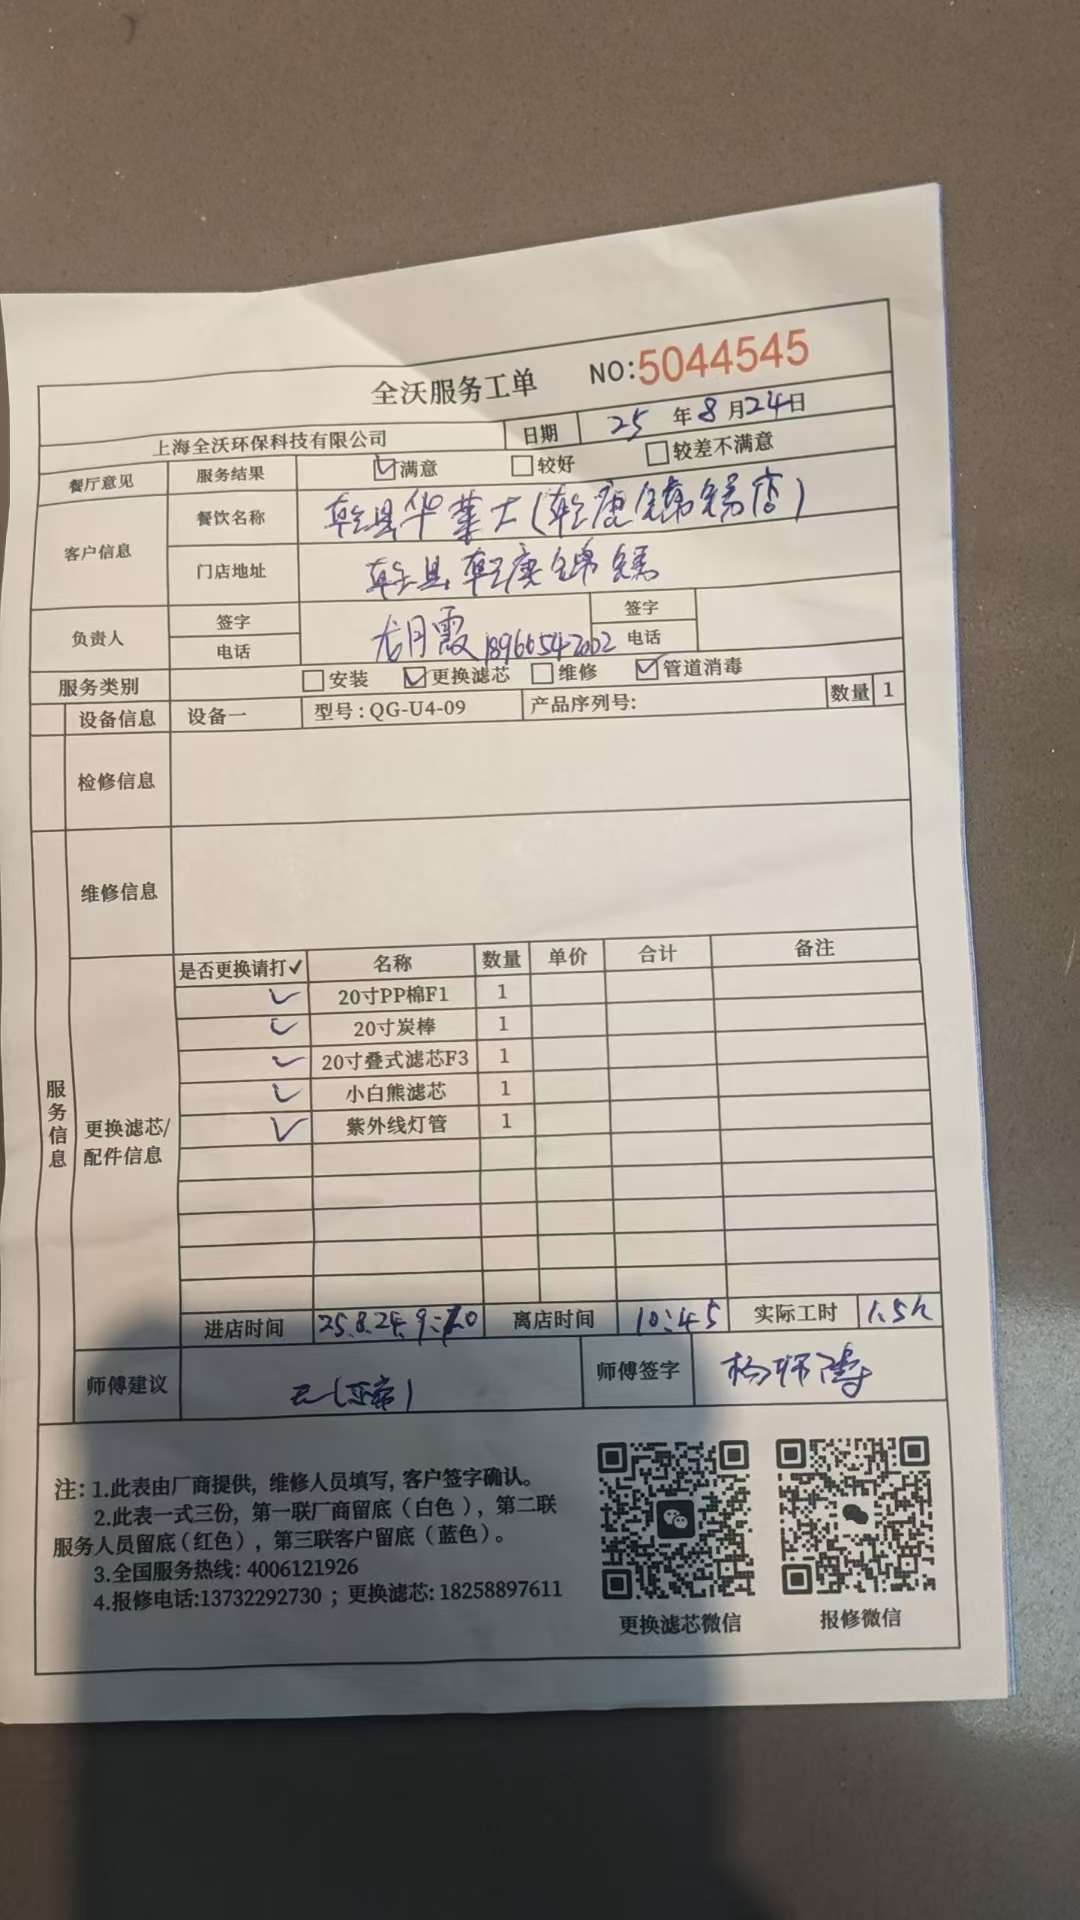 全沃服务工单 NO:5044545
上海全沃环保科技有限公司 日期 25 年 8 月 24 日
餐厅意见 服务结果 满意 较好 较差不满意
客户信息 餐饮名称 乾县华莱士(乾唐锦绣店)
门店地址 乾县乾唐锦绣
负责人 签字 龙月霞 签字
电话 电话
服务类别 安装 更换滤芯 维修 管道消毒
设备信息 设备一 型号:QG-U4-09 产品序列号: 数量 1
检修信息
维修信息
服务信息
更换滤芯/配件信息
是否更换请打✓ 名称 数量 单价 合计 备注
✓ 20寸PP棉F1 1
✓ 20寸炭棒 1
✓ 20寸叠式滤芯F3 1
✓ 小白熊滤芯 1
✓ 紫外线灯管 1
进店时间 25.8.24. 离店时间 10:45 实际工时 1.5h
师傅建议 无(正常) 师傅签字
注: 1.此表由厂商提供, 维修人员填写, 客户签字确认。
2.此表一式三份, 第一联厂商留底(白色), 第二联
服务人员留底(红色), 第三联客户留底(蓝色)。
3.全国服务热线: 4006121926
4.报修电话:13732292730 ; 更换滤芯: 18258897611
更换滤芯微信 报修微信